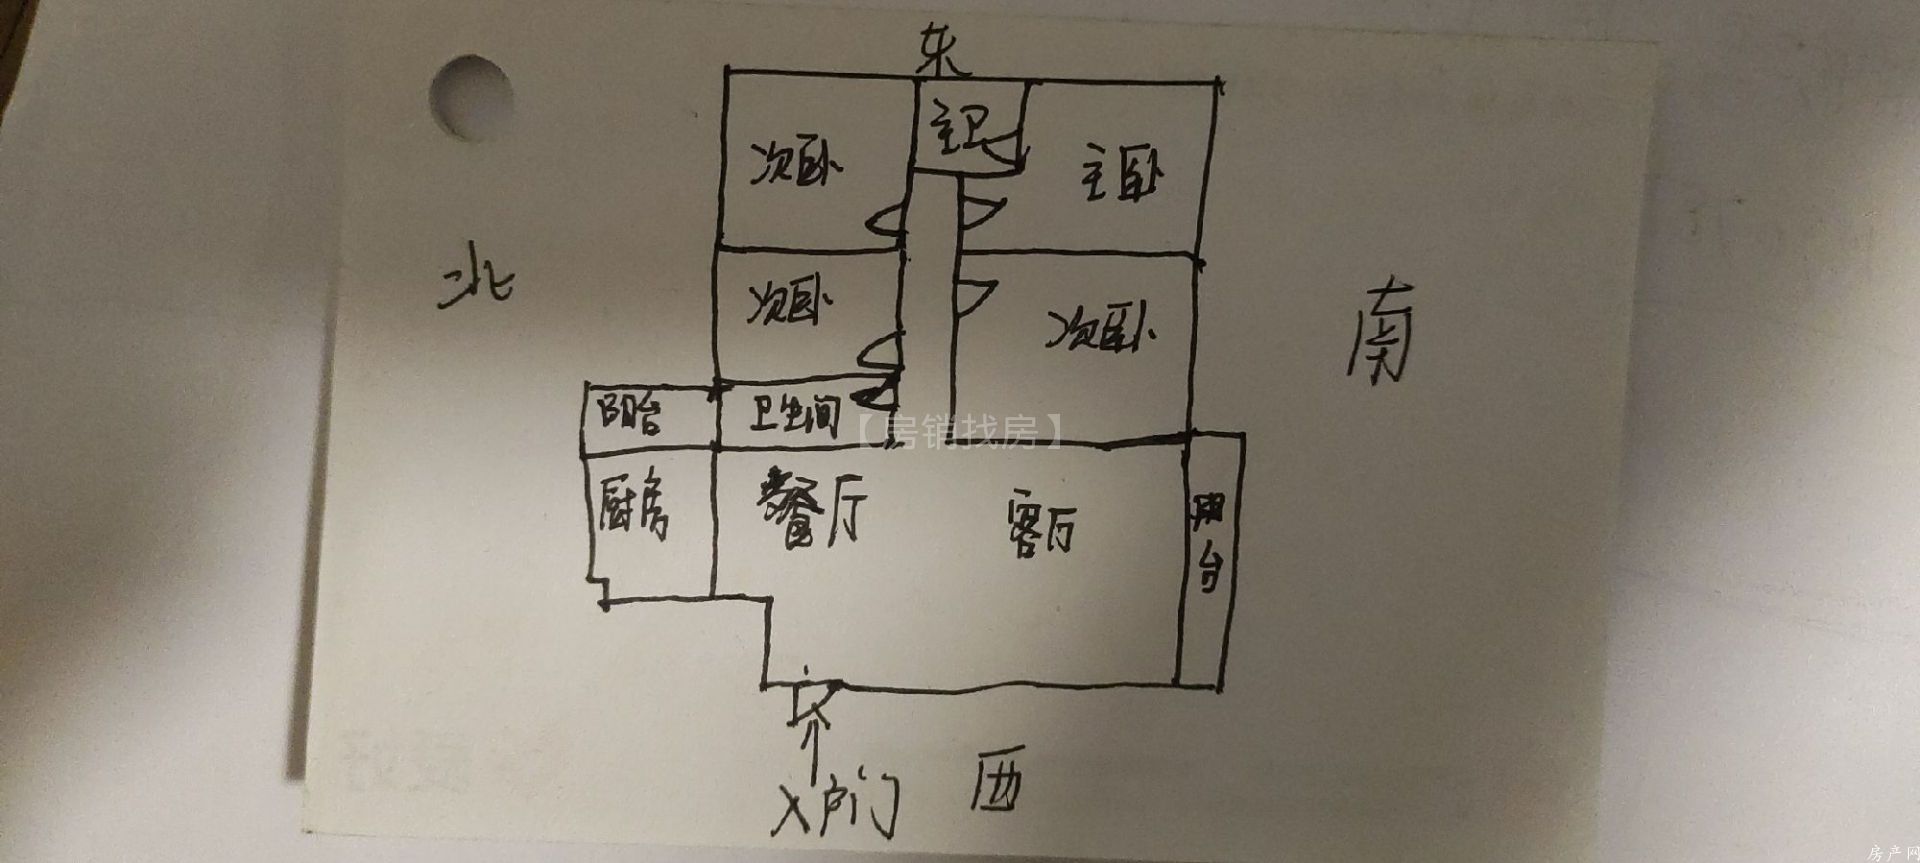 东
主卫
次卧
主卧
北
次卧
次卧
南
阳台
卫生间
【房销找房】
厨房
餐厅
客厅
阳台
入户门
西
房产网